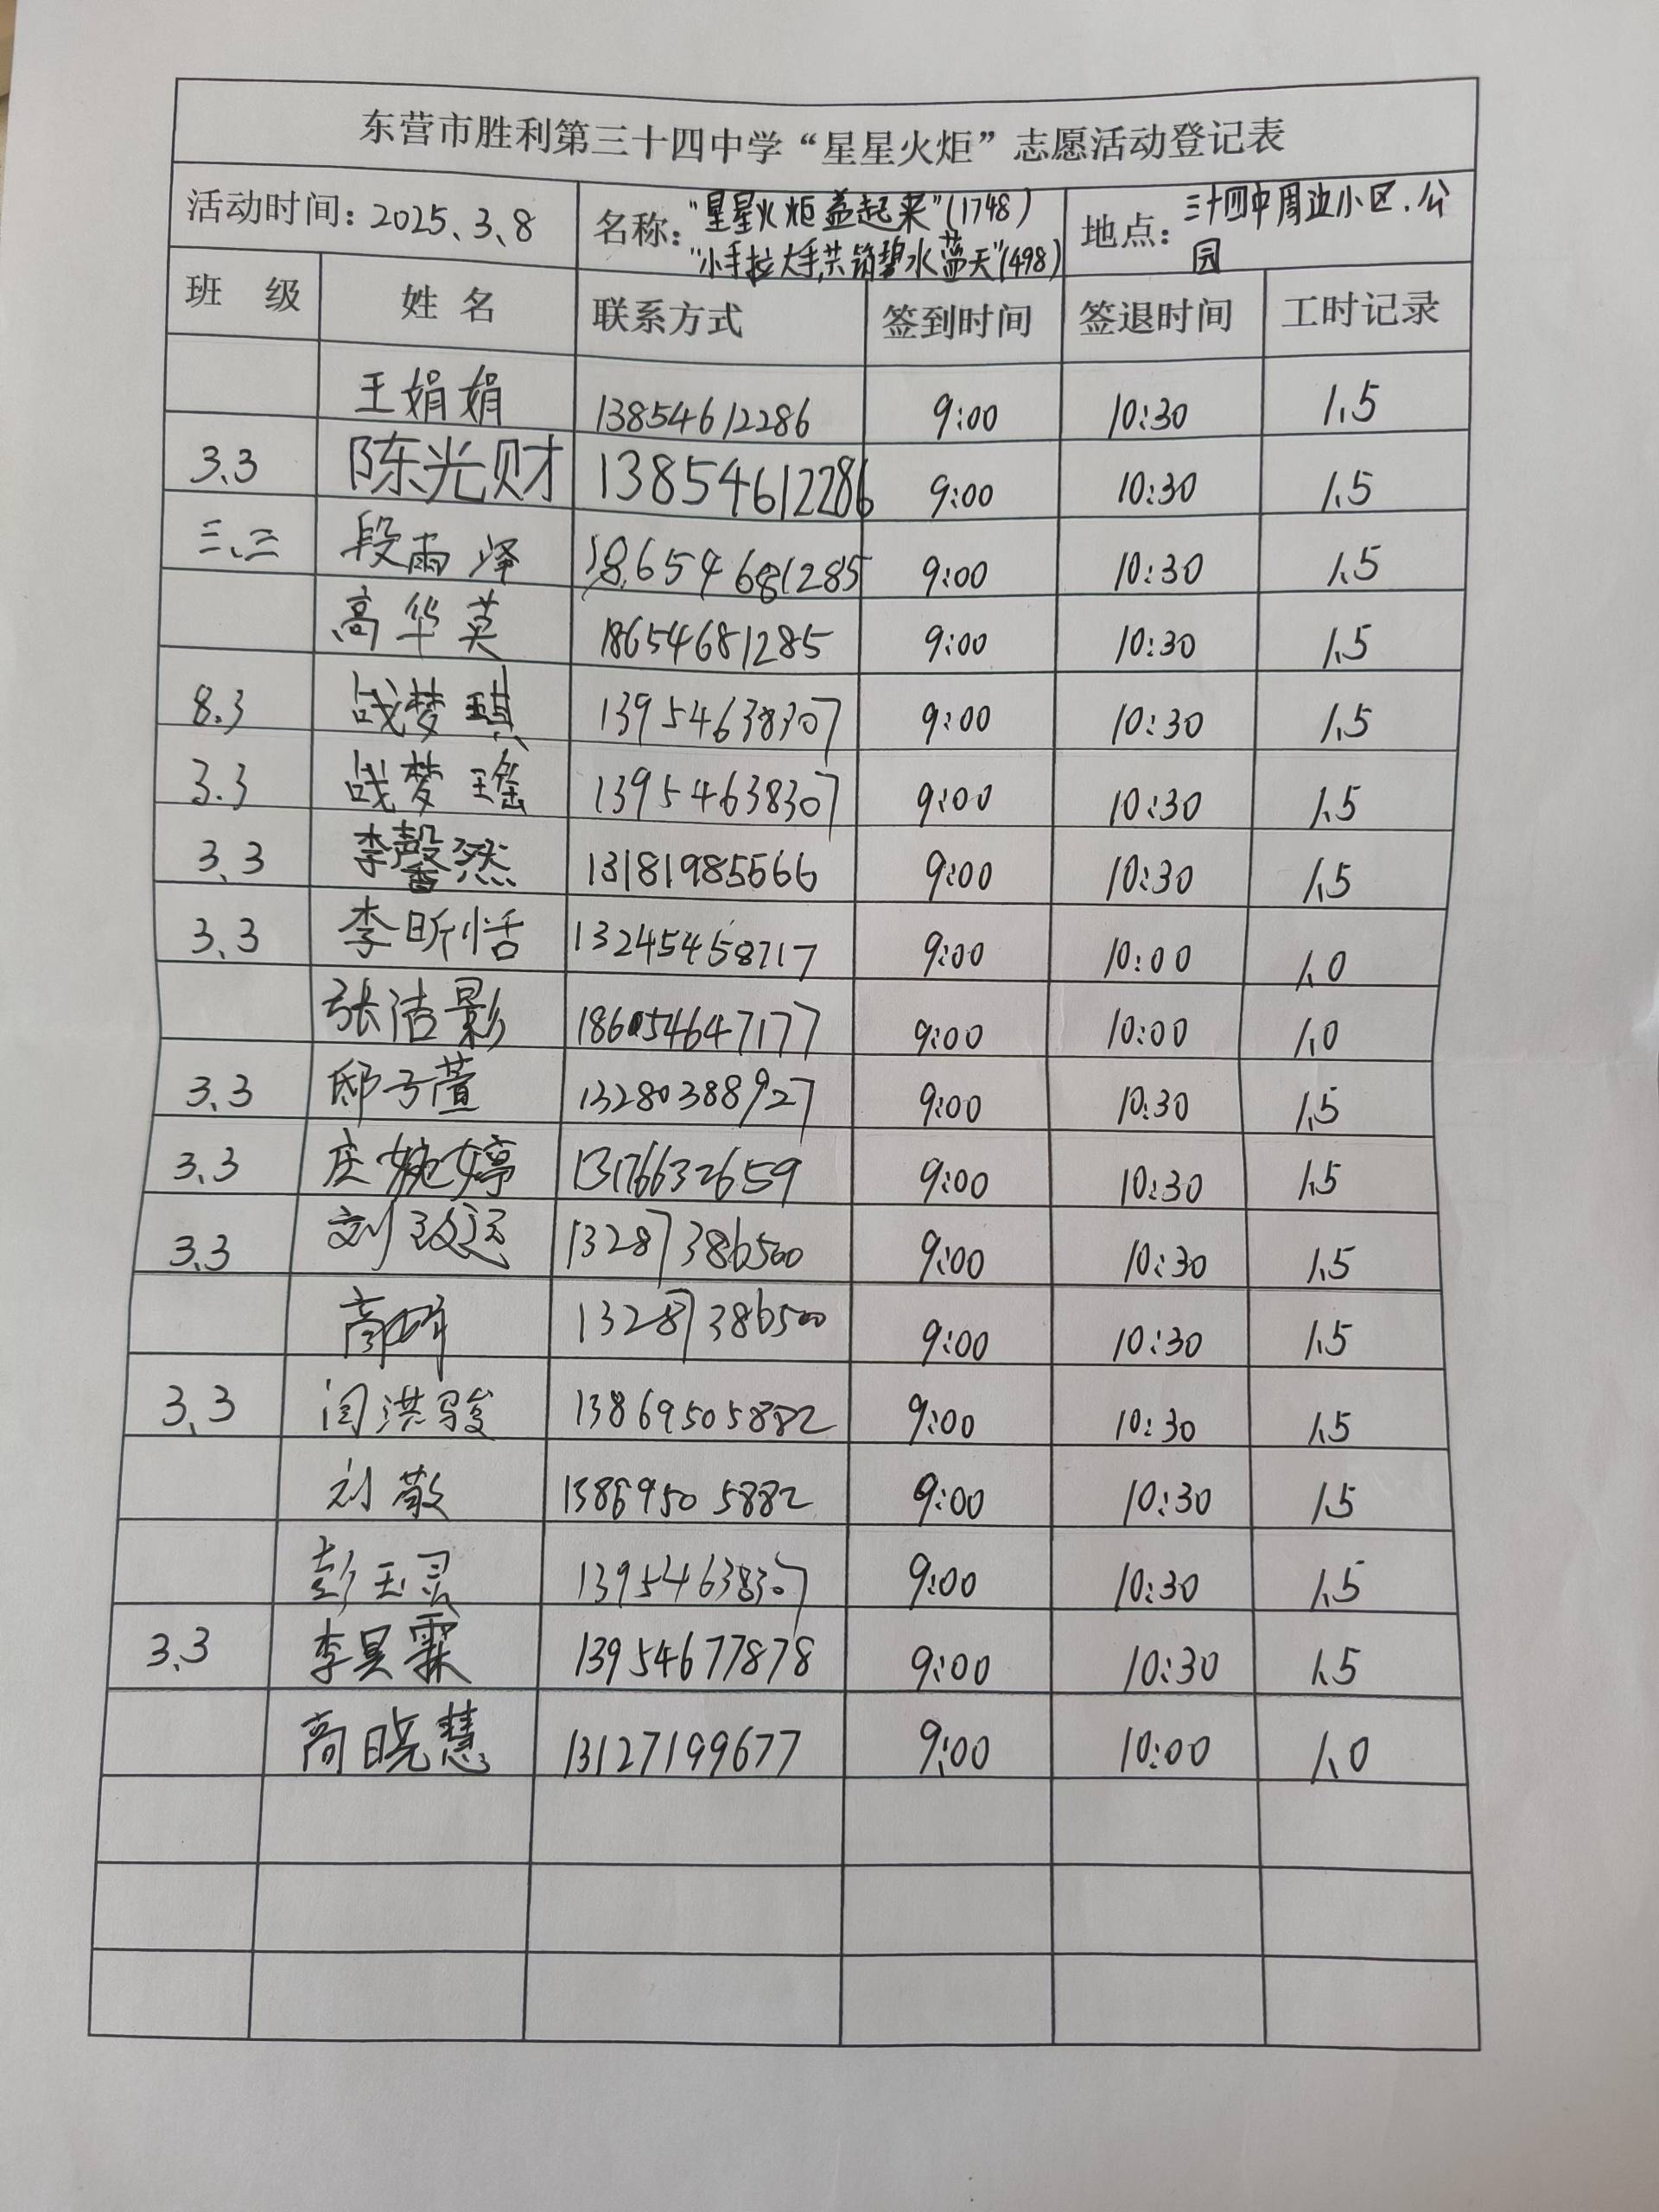 东营市胜利第三十四中学“星星火炬”志愿活动登记表
活动时间：2025、3、8 名称：“星星火炬益起来”(1748) 地点：三十四中周边小区、公
“小手拉大手,共筑碧水蓝天”(498) 园
班 级 姓 名 联系方式 签到时间 签退时间 工时记录
王娟娟 13854612286 9:00 10:30 1.5
3.3 陈光财 13854612286 9:00 10:30 1.5
三、三 段雨泽 18654681285 9:00 10:30 1.5
高华英 18654681285 9:00 10:30 1.5
8.3 战梦琪 13954638307 9:00 10:30 1.5
3.3 战梦瑶 13954638307 9:00 10:30 1.5
3.3 李馨然 13181985666 9:00 10:30 1.5
3.3 李昕恬 13245458717 9:00 10:00 1.0
张洁影 186054647177 9:00 10:00 1.0
3.3 邸子萱 13280388927 9:00 10:30 1.5
3.3 庄婉婷 13176632659 9:00 10:30 1.5
3.3 刘 13287386500 9:00 10:30 1.5
高峰 13287386500 9:00 10:30 1.5
3.3 闫洪骏 13869505882 9:00 10:30 1.5
刘敬 13869505882 9:00 10:30 1.5
彭玉灵 13954638307 9:00 10:30 1.5
3.3 李昊霖 13954677878 9:00 10:30 1.5
商晓慧 13127199677 9:00 10:00 1.0